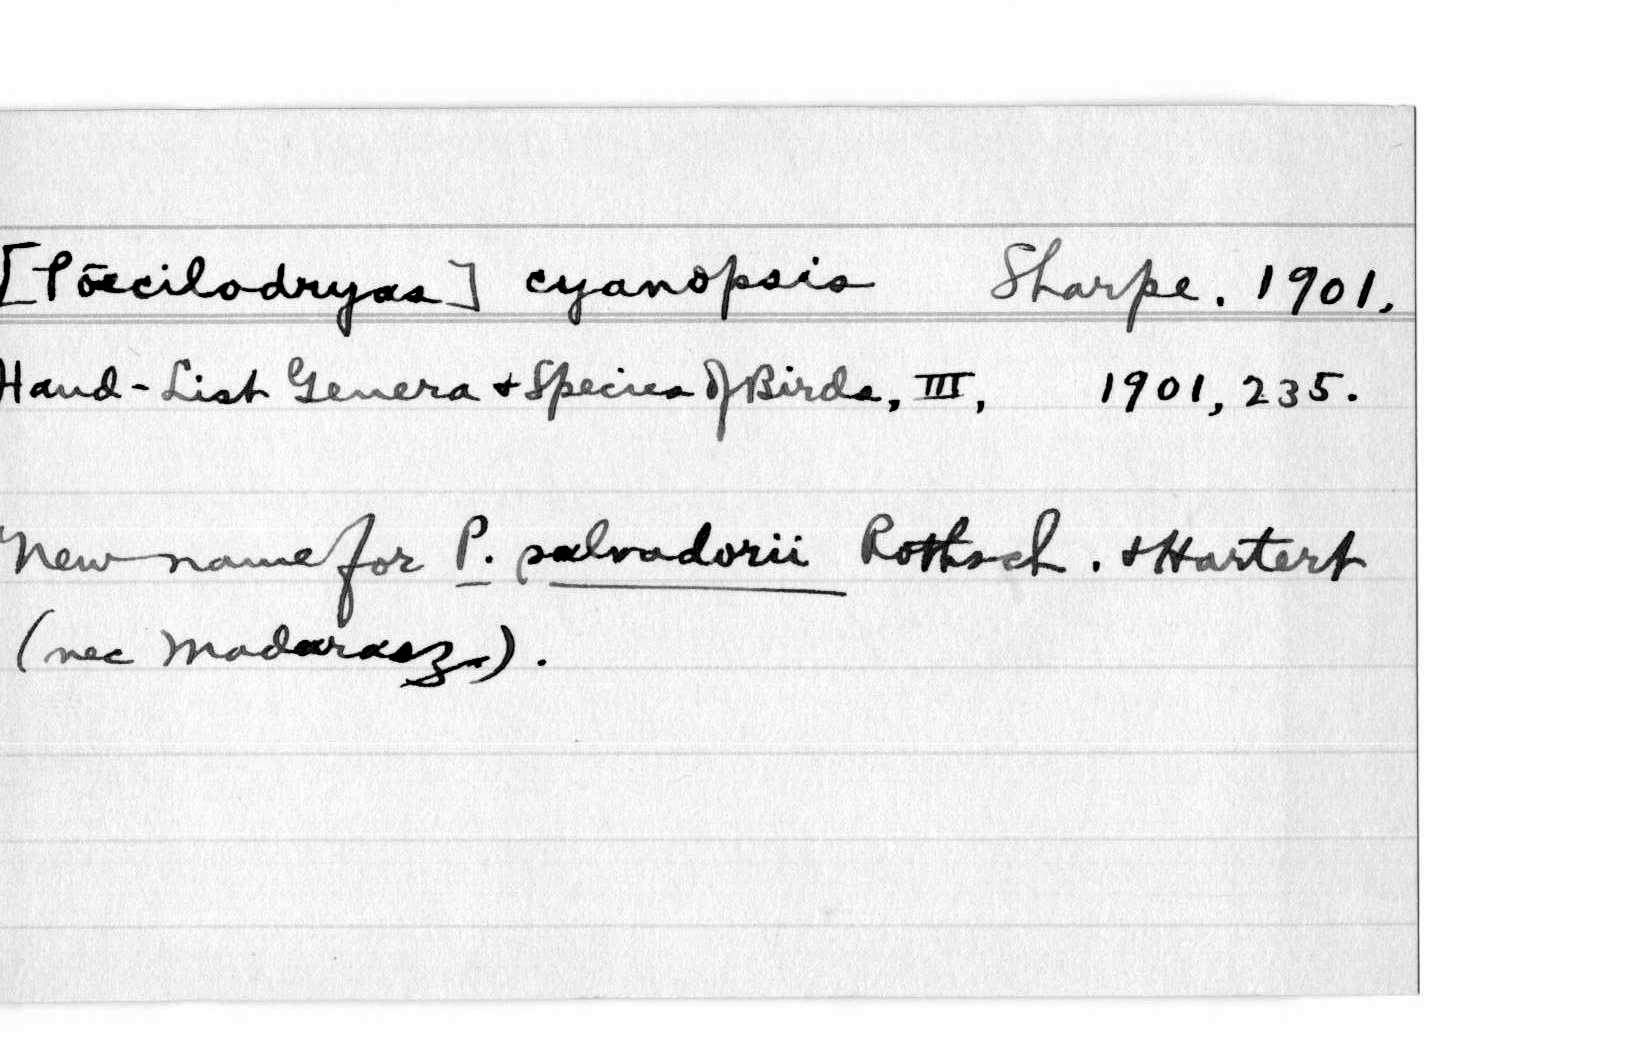 [Pœcilodryas] cyanopsis Sharpe. 1901.
Hand-List Genera + Species of Birds, III, 1901, 235.
New name for P. salvadorii Rothsch. + Hartert
(nec Madarasz).